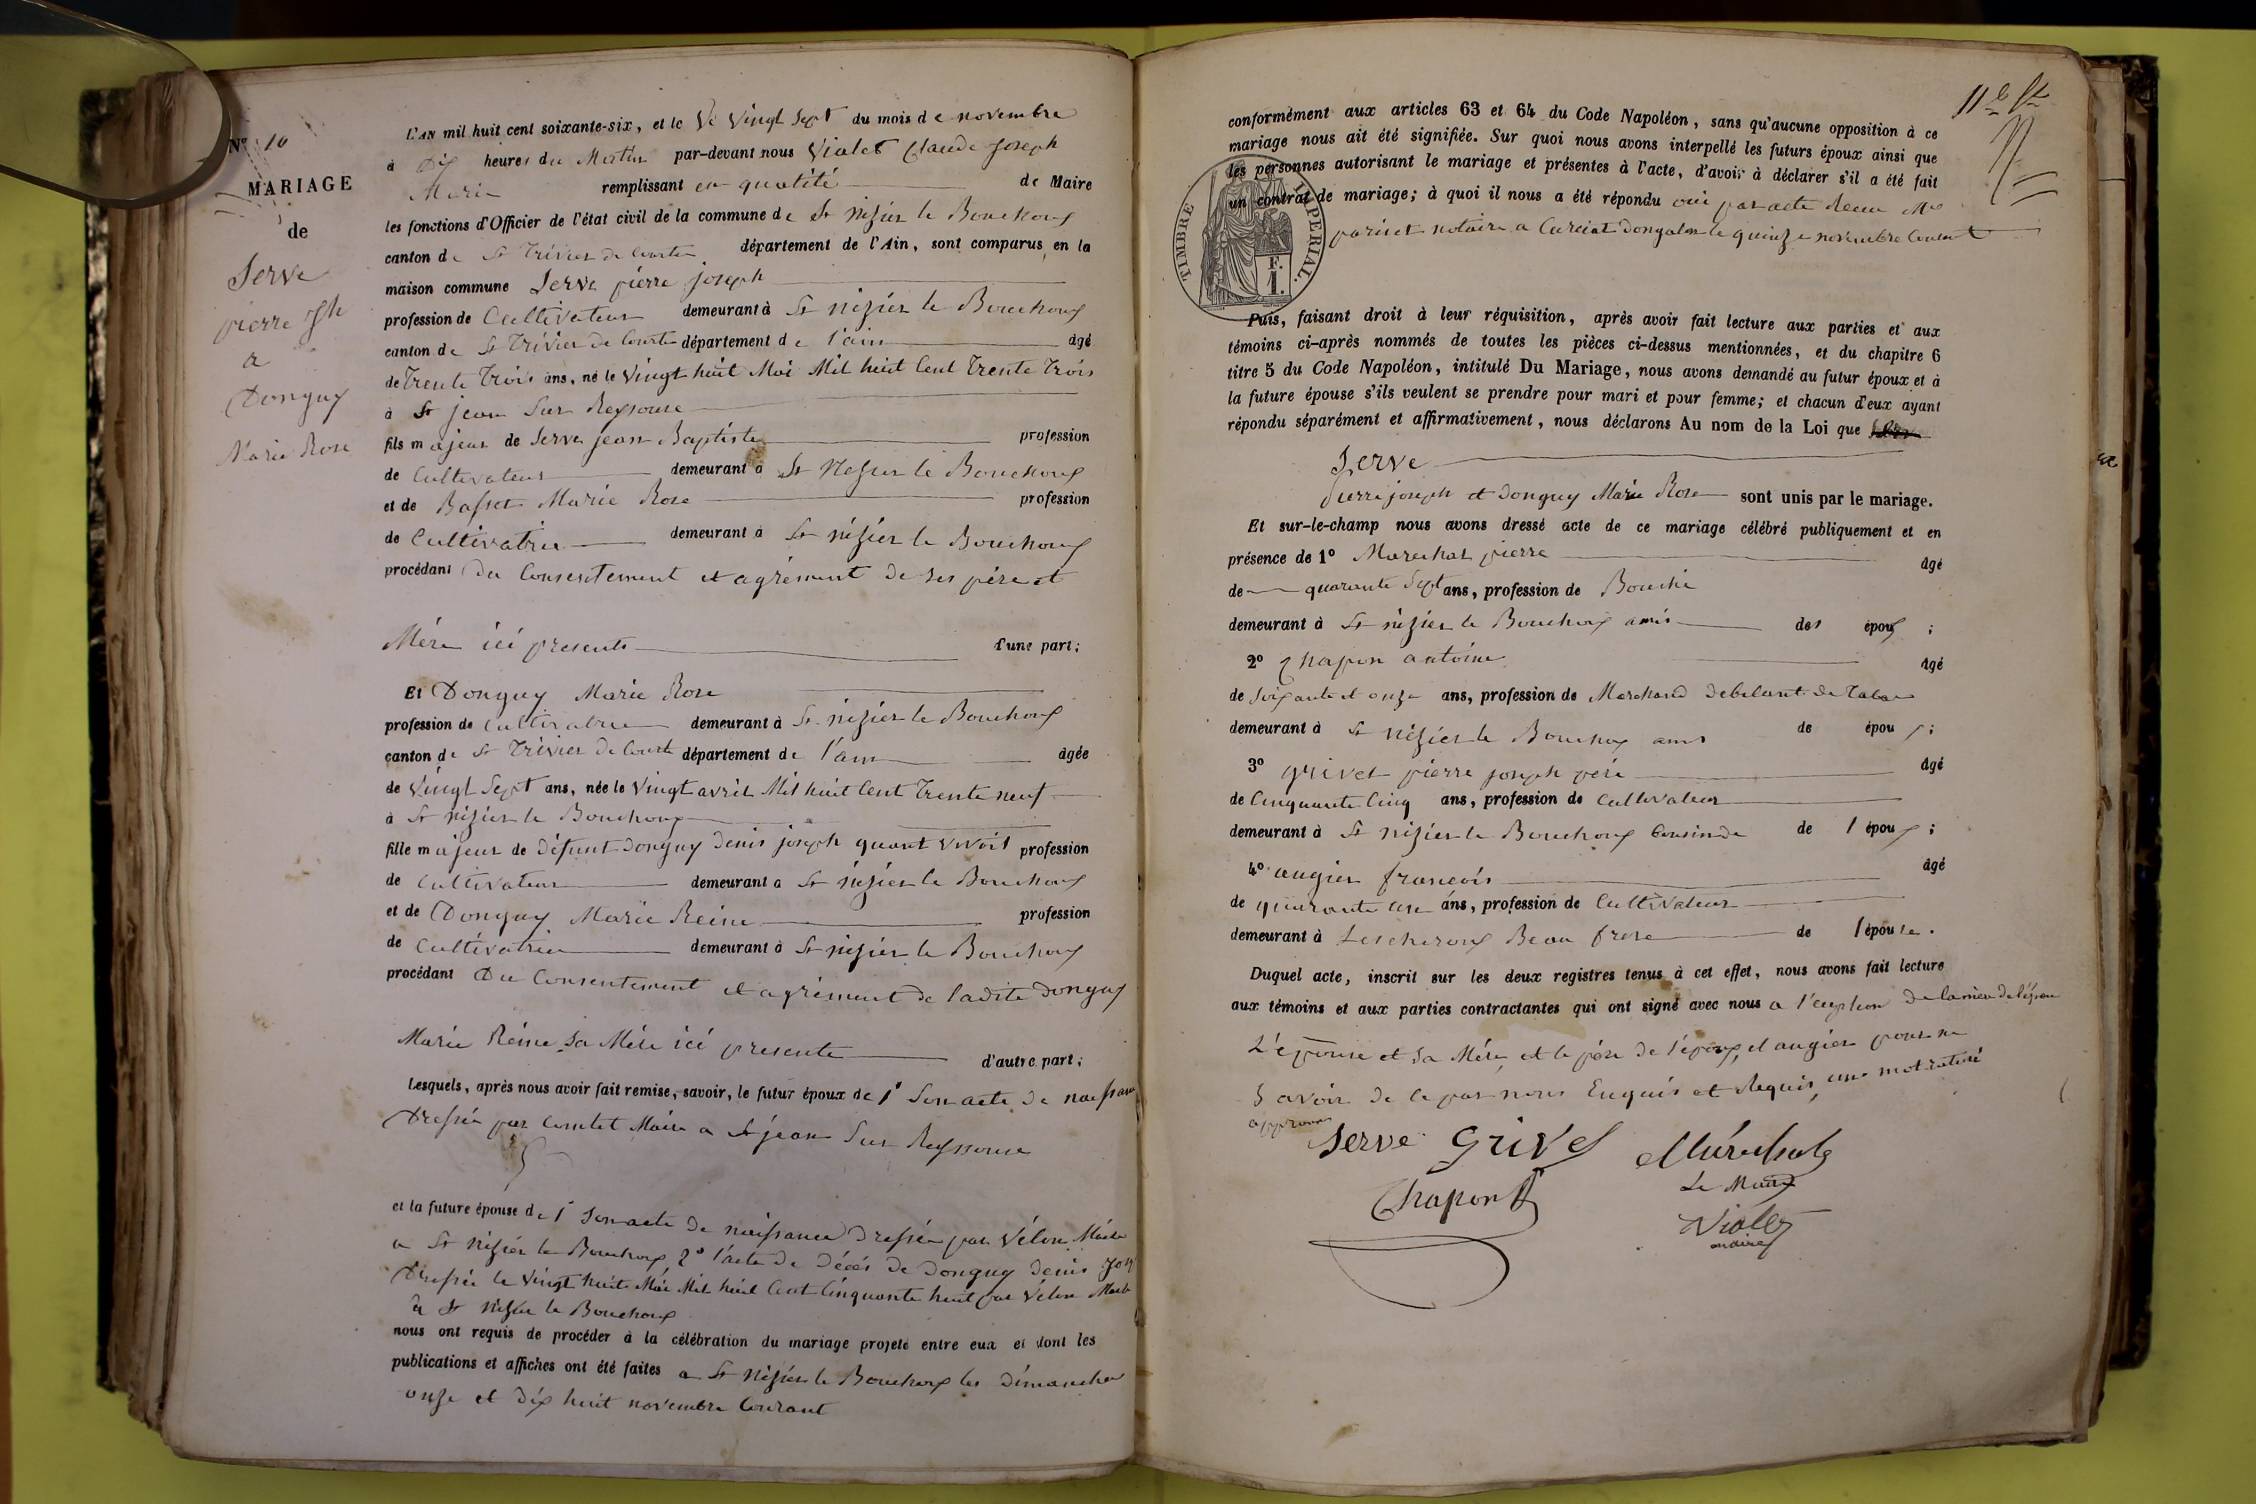 N° 10
MARIAGE
de
Serve
pierre Jph
a
Donguy
Marie Rose
L'AN mil huit cent soixante-six, et le Vingt Sept du mois de novembre
à Dix heures du Matin par-devant nous Violet Claude Joseph
Marie remplissant en qualité de Maire
les fonctions d'Officier de l'état civil de la commune de St nizier le Bouchoux
canton de St Trivier de Courtes département de l'Ain, sont comparus en la
maison commune Serve pierre joseph
profession de Cultivateur demeurant à St nizier le Bouchoux
canton de St Trivier de Courtes département de l'ain âgé
de Trente Trois ans, né le Vingt huit Mai Mil huit Cent Trente Trois
à St jean Sur Reyssouse
fils majeur de Serve jean Baptiste profession
de Cultivateur demeurant à St Nizier le Bouchoux
et de Basset Marie Rose profession
de Cultivatrice demeurant à St nizier le Bouchoux
procédant du Consentement et agrément de ses père et
Mère ici presents d'une part;
Et Donguy Marie Rose
profession de Cultivatrice demeurant à St nizier le Bouchoux
canton de St Trivier de Courtes département de l'ain âgée
de Vingt Sept ans, née le Vingt avril Mil huit Cent Trente neuf
à St nizier le Bouchoux
fille majeur de défunt donguy denis joseph quant vivoit profession
de Cultivateur demeurant à St nizier le Bouchoux
et de Donguy Marie Reine profession
de Cultivatrice demeurant à St nizier le Bouchoux
procédant Du Consentement et agrément de ladite donguy
Marie Reine sa Mère ici presente d'autre part;
Lesquels, après nous avoir fait remise, savoir, le futur époux de 1° Son acte de naissance
Dressée par Comtet Maire a St jean Sur Reyssouse
et la future épouse de 1° Son acte de naissance dressée par Vélon Maire
a St nizier le Bouchoux 2° l'acte de décés de donguy denis Josh
Dressée le Vingt huit Mai Mil huit Cent Cinquante huit par Vélon Maire
à St nizier le Bouchoux
nous ont requis de procéder à la célébration du mariage projeté entre eux et dont les
publications et affiches ont été faites a St nizier le Bouchoux les dimanches
onze et dix huit novembre Courant
conformément aux articles 63 et 64 du Code Napoléon, sans qu'aucune opposition à ce
mariage nous ait été signifiée. Sur quoi nous avons interpellé les futurs époux ainsi que
les personnes autorisant le mariage et présentes à l'acte, d'avoir à déclarer s'il a été fait
un contrat de mariage; à quoi il nous a été répondu oui par acte Recu Me
pariset notaire a Curciat dongalon le quinze novembre Courant
TIMBRE IMPÉRIAL.
F.
1.
Puis, faisant droit à leur réquisition, après avoir fait lecture aux parties et aux
témoins ci-après nommés de toutes les pièces ci-dessus mentionnées, et du chapitre 6
titre 5 du Code Napoléon, intitulé Du Mariage, nous avons demandé au futur époux et à
la future épouse s'ils veulent se prendre pour mari et pour femme; et chacun d'eux ayant
répondu séparément et affirmativement, nous déclarons Au nom de la Loi que
Serve
Pierre joseph et donguy Marie Rose sont unis par le mariage.
Et sur-le-champ nous avons dressé acte de ce mariage célébré publiquement et en
présence de 1° Marechal pierre âgé
de quarante Sept ans, profession de
demeurant à St nizier le Bouchoux amis des époux ;
2° Chapon antoine âgé
de soixante et onze ans, profession de Marchand debitant de Tabac
demeurant à St nizier le Bouchoux amis de époux ;
3° grivet pierre joseph père âgé
de Cinquante Cinq ans, profession de Cultivateur
demeurant à St nizier le Bouchoux Cousin de de l époux ;
4° augier francois âgé
de quarante un ans, profession de Cultivateur
demeurant à Lescheroux Beau frere de l épouse.
Duquel acte, inscrit sur les deux registres tenus à cet effet, nous avons fait lecture
aux témoins et aux parties contractantes qui ont signé avec nous a l'exeption de la mère de l'époux
L'epouse et Sa Mère, et le père de l'époux, et augier pour ne
Savoir de ce par nous Enquis et Requis, un mot raturé
approuvé
Serve Grivet Maréchal
Chapon Le Maire
Violet
maire